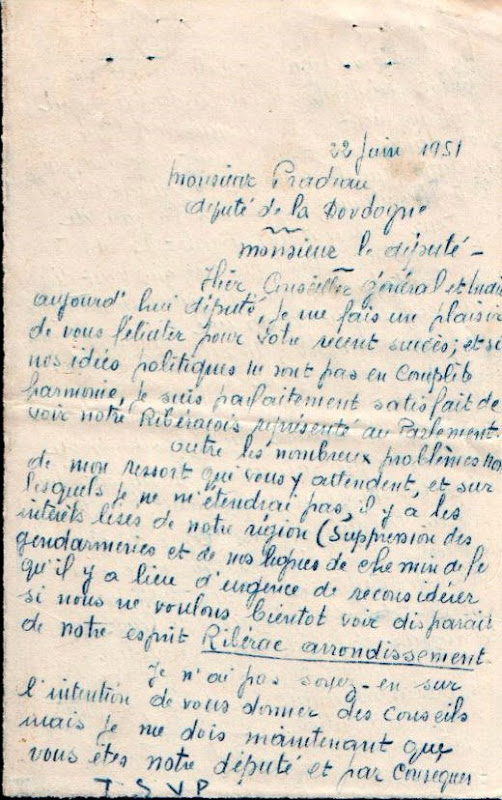 22 juin 1951
Monsieur Pradeau
député de la Dordogne
Monsieur le député -
Hier, Conseiller général et
aujourd'hui député, je me fais un plaisir
de vous féliciter pour votre récent succès; et si
nos idées politiques ne sont pas en complète
harmonie, je suis parfaitement satisfait de
voir notre Ribéracois représenté au Parlement.
outre les nombreux problèmes non
de mon ressort qui vous y attendent, et sur
lesquels je ne m'étendrai pas, il y a les
intérêts lésés de notre région (suppression des
gendarmeries et de nos lignes de chemin de fe
qu'il y a lieu d'urgence de reconsidérer
si nous ne voulons bientôt voir disparait
de notre esprit Ribérac arrondissement
Je n'ai pas soyez-en sur
l'intention de vous donner des conseils
mais je me dois maintenant que
vous êtes notre député et par conséquen
T S V P